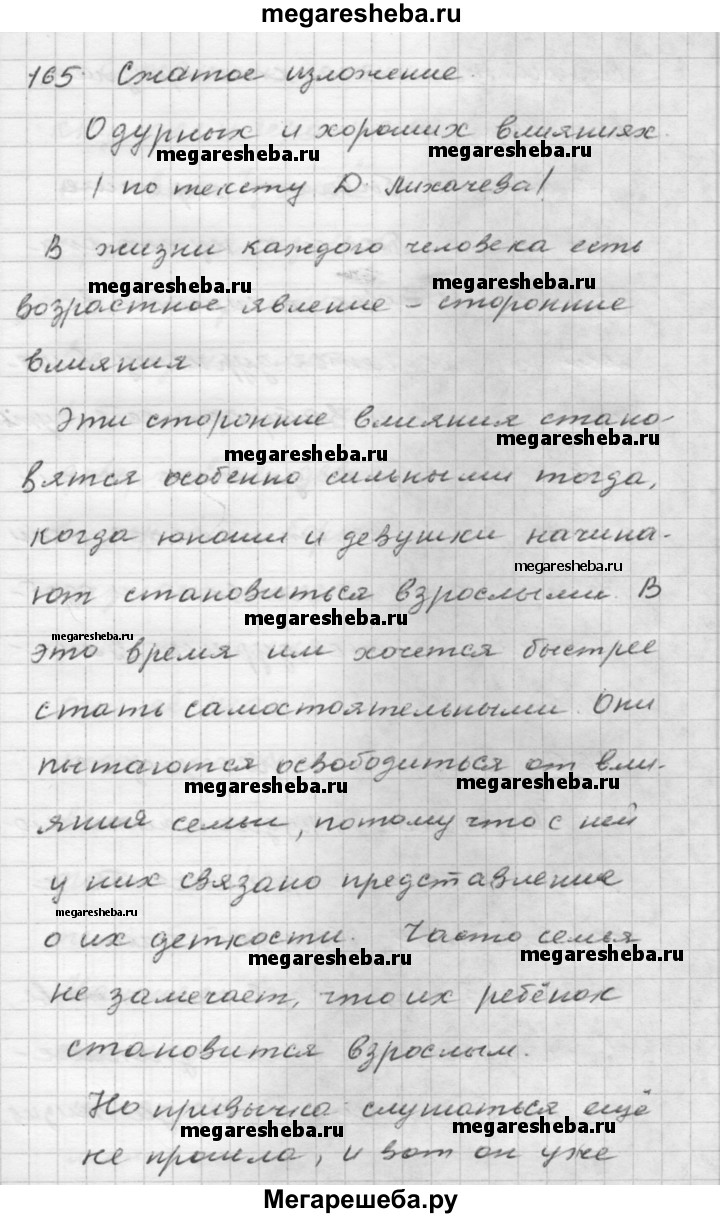 megaresheba.ru
165 Сжатое изложение.
О дурных и хороших влияниях.
megaresheba.ru megaresheba.ru
(по тексту Д. Лихачева)
В жизни каждого человека есть
megaresheba.ru megaresheba.ru
возрастное явление - сторонние
влияния.
Эти сторонние влияния стано-
megaresheba.ru megaresheba.ru
вятся особенно сильными тогда,
когда юноши и девушки начина-
megaresheba.ru
ют становиться взрослыми. В
megaresheba.ru megaresheba.ru
это время им хочется быстрее
стать самостоятельными. Они
пытаются освободиться от вли-
megaresheba.ru megaresheba.ru
яния семьи, потому что с ней
у них связано представление
megaresheba.ru
о их деткости. Часто семья
megaresheba.ru megaresheba.ru
не замечает, что их ребёнок
становится взрослым.
Но привычка слушаться ещё
megaresheba.ru megaresheba.ru
не прошла, и вот он уже
Мегарешеба.ру